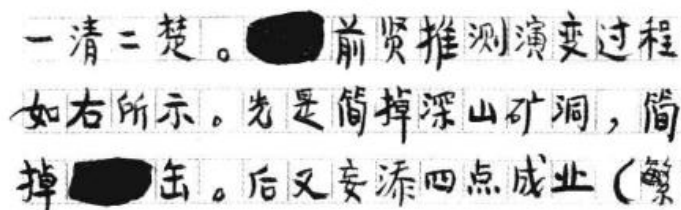 一清二楚。前贤推测演变过程
如右所示。先是简掉深山矿洞，简
掉缶。后又妄添四点成业（繁